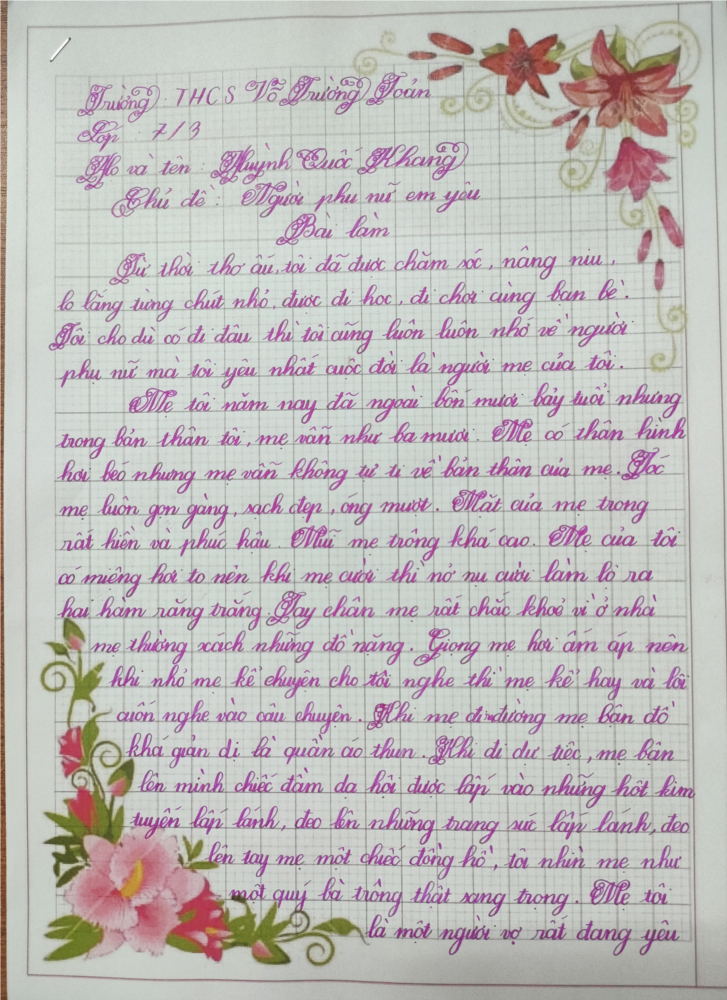 Trường : THCS Võ Trường Toản
Lớp : 7/3
Họ và tên : Huỳnh Quốc Khang
Chủ đề : Người phụ nữ em yêu
Bài làm
Từ thời thơ ấu, tôi đã được chăm sóc, nâng niu,
lo lắng từng chút nhỏ, được đi học, đi chơi cùng bạn bè.
Tôi cho dù có đi đâu thì tôi cũng luôn luôn nhớ về người
phụ nữ mà tôi yêu nhất cuộc đời là người mẹ của tôi.
Mẹ tôi năm nay đã ngoài bốn mươi bảy tuổi nhưng
trong bản thân tôi, mẹ vẫn như ba mươi. Mẹ có thân hình
hơi béo nhưng mẹ vẫn không tự ti về bản thân của mẹ. Tóc
mẹ luôn gọn gàng, sạch đẹp, óng mượt. Mắt của mẹ trông
rất hiền và phúc hậu. Mũi mẹ trông khá cao. Mẹ của tôi
có miệng hơi to nên khi mẹ cười thì nở nụ cười làm lò ra
hai hàm răng trắng. Tay chân mẹ rất chắc khoẻ vì ở nhà
mẹ thường xách những đồ nặng. Giọng mẹ hơi ấm áp nên
khi nhỏ mẹ kể chuyện cho tôi nghe thì mẹ kể hay và lôi
cuốn nghe vào câu chuyện. Khi mẹ đi đường mẹ bận đồ
khá giản dị là quần áo thun. Khi đi dự tiệc, mẹ bận
lên mình chiếc đầm dạ hội được lấp vào những hột kim
tuyến lấp lánh, đeo lên những trang sức lấp lánh, đeo
lên tay mẹ một chiếc đồng hồ, tôi nhìn mẹ như
một quý bà trông thật sang trọng. Mẹ tôi
là một người vợ rất đáng yêu